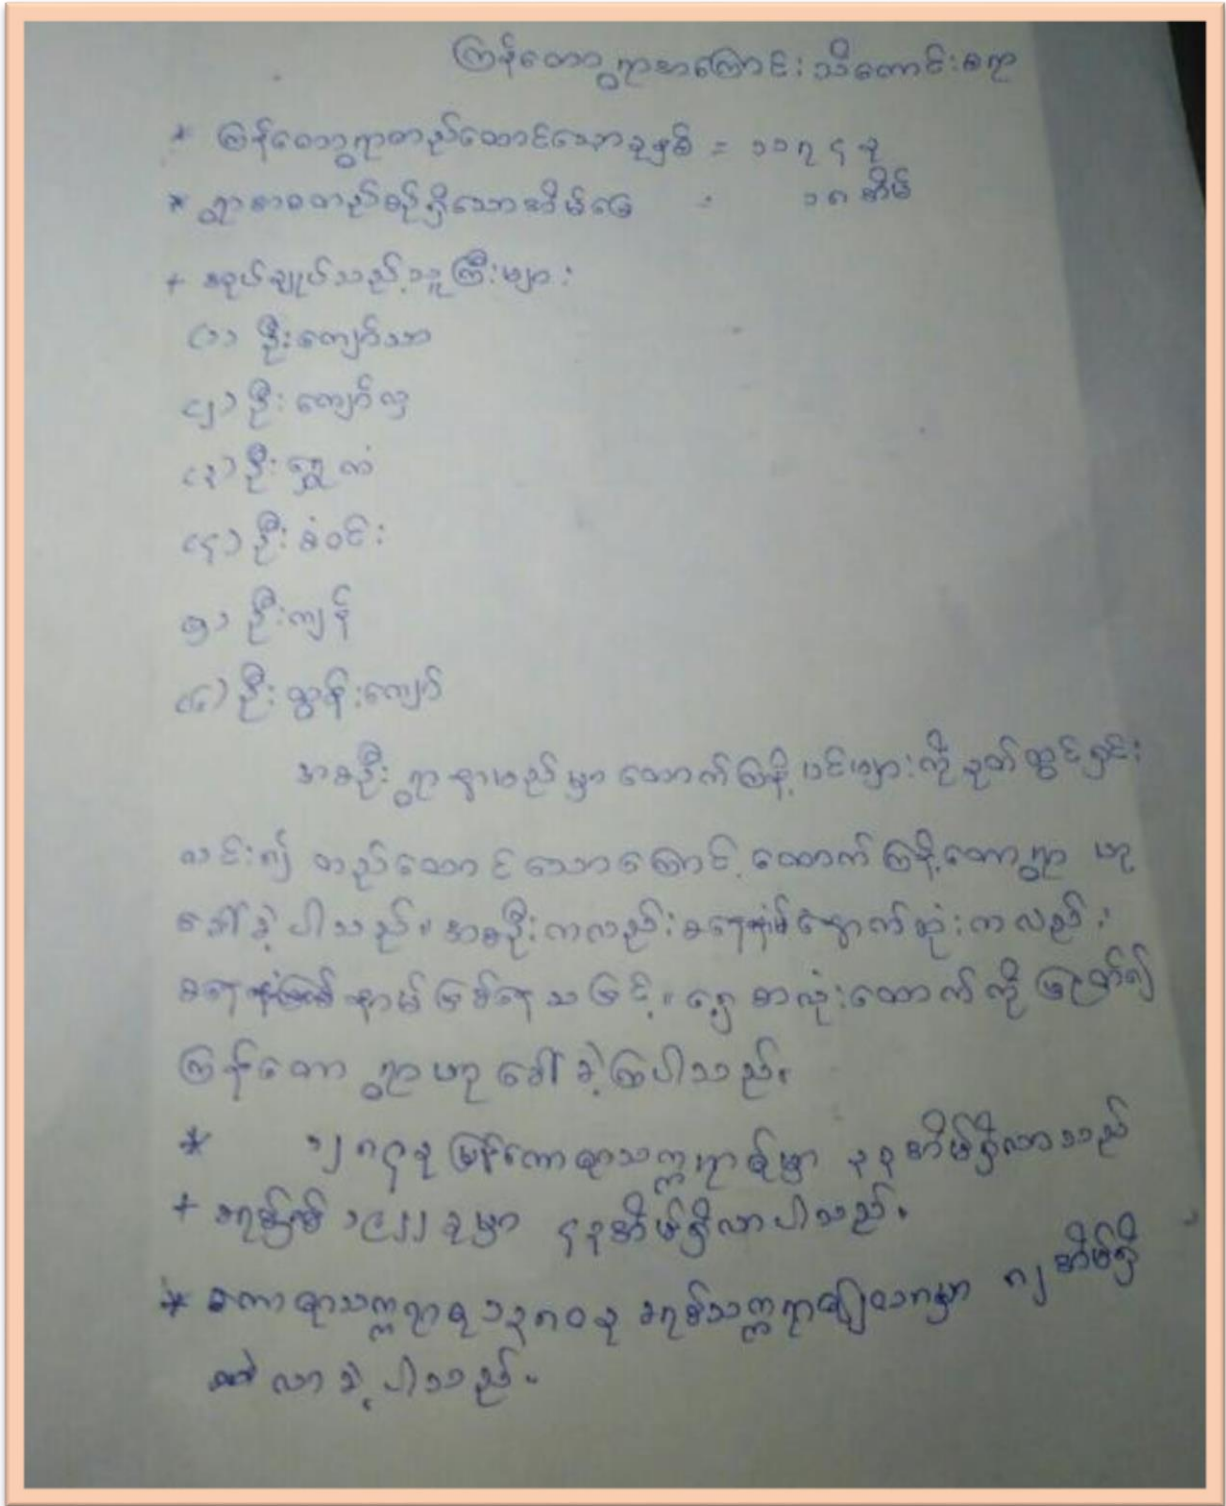 ကြန်တောရွာအကြောင်း သိကောင်းစရာ
* ကြန်တောရွာတည်ထောင်သောခုနှစ် = ၁၁၇၄ ခု
* ရွာစတည်စဉ်ရှိသောအိမ်ခြေ = ၁၈ အိမ်
+ အုပ်ချုပ်သည့်သူကြီးများ :
(၁) ဦးကျော်သာ
(၂) ဦးကျော်လှ
(၃) ဦးရွှေကံ
(၄) ဦးစံဝင်း
(၅) ဦးကျန်
(၆) ဦးထွန်းကျော်
အစဦး ရွာနာမည်မှာ တောက်ကြန့်ပင်များကို ခုတ်ထွင်ရှင်း
လင်း၍ တည်ထောင်သောကြောင့် တောက်ကြန့်တောရွာ ဟု
ခေါ်ခဲ့ပါသည်။ အစဦးကလည်း နောက်ဆုံးကလည်း
နာမ်ဖြစ်နေသဖြင့်။ ရှေ့စာလုံးတောက်ကို ဖြုတ်၍
ကြန်တော ရွာဟု ခေါ်ခဲ့ကြပါသည်။
* ၁၂၈၄ခု မြန်မာ သက္ကရာဇ်မှာ ၃၃အိမ်ရှိလာသည်
+ ခရစ်နှစ် ၁၉၂၂ ခုမှာ ၄၃အိမ်ရှိလာပါသည်။
* ကောဇာသက္ကရာဇ် ၁၃၈၀ခု မှာ ၈၂ အိမ်ရှိ
လာခဲ့ပါသည်။